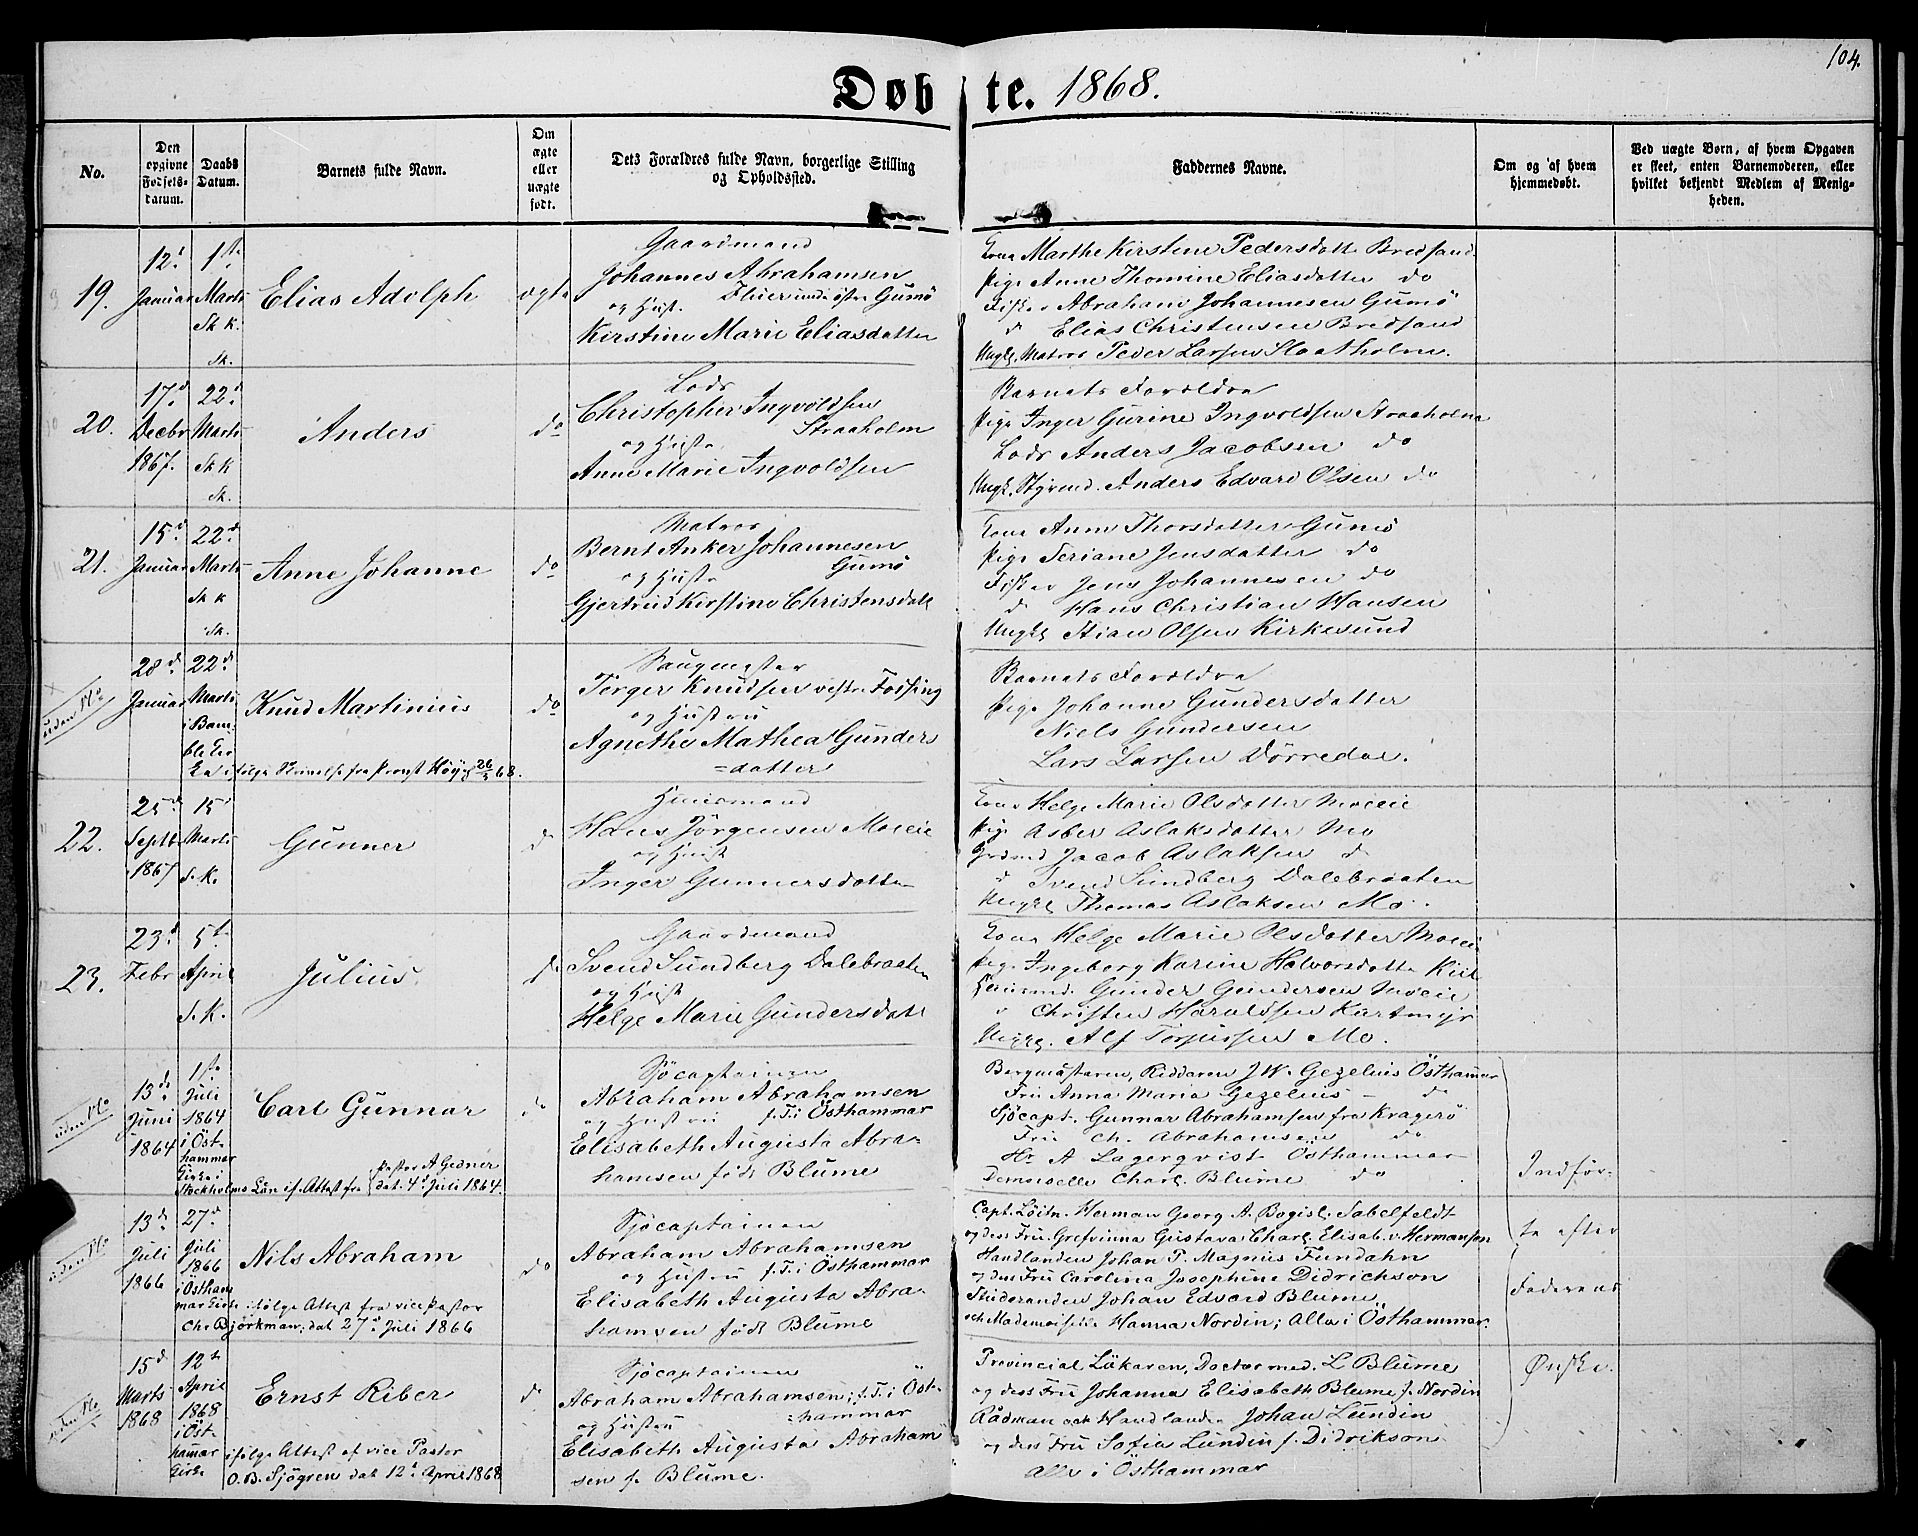 104.
Døbte. 1868.
No.
Den opgivne Fødselsdatum.
Daabs Datum.
Barnets fulde Navn.
Om ægte eller uægte født.
Dets Forældres fulde Navn, borgerlige Stilling og Opholdssted.
Faddernes Navne.
Om og af hvem hjemmedøbt.
Ved uægte Børn, af hvem Opgaven er skeet, enten Barnemoderen, eller hvilket bekjendt Medlem af Menigheden.
19.
12t Januar
1ste Marts Sk k. Sk.
Elias Adolph
ægte
Gaardmand
Johannes Abrahamsen
og Hust.
Kirstine Marie Eliasdatter
Kone Marthe Kirstine Pedersdatt Bredsand
Pige Anne Thomine Eliasdatter do
Fisker Abraham Johannesen Gumö
d Elias Christensen Bredsand
Ungk. Matros Peder Larsen Slaatholm.
20.
17d Decbr 1867.
22d Marts Sk k Sk.
Anders
do
Lods
Christopher Ingvoldsen
Straaholm
og Hustr
Anne Marie Ingvoldsen
Barnets Forældre
Pige Inger Gurine Ingvoldsen Straaholm
Lods Anders Jacobsen do
Ungk. Styrmd. Anders Edvard Olsen do
21.
15d Januar
22d Marts Sk k Sk.
Anne Johanne
do
Matros
Bernt Anker Johannesen
Gumö
og Hustr
Gjertrud Kirstine Christensdatt
Kone Anne Thorsdatter Gumö
Pige Teriane Jensdatter do
Fisker Jens Johannesen do
d Hans Christian Hansen
Ungk Stian Olsen Kirkesund
uden No
28d Januar
22d Marts i Bamble Kirke ifølge Skrivelse fra Provst Høyer 26/3 68.
Knud Martinius
do
Saugmester
Terger Knudsen vestre Fossing
og Hustru
Agnethe Mathea Gunders
=datter
Barnets Forældre
Pige Johanne Gundersdatter
Niels Gundersen
Lars Larsen Dørredal.
22.
25d Septb. 1867
15 Marts S. K.
Gunner
d
Huusmand
Hans Jörgensen Moeie
og Hust
Inger Gunnersdatter
Kone Helge Marie Olsdatter Moeie
Pige Asber Aslaksdatter Mo
Grdmd Jacob Aslaksen d
d Svend Sundberg Dalebraaten
Ungk Thomas Aslaksen Mo.
23.
23d Febr
5t April S. K.
Julius.
d
Gaardmand
Svend Sundberg Dalebraaten
og Hust
Helge Marie Gundersdatt
Kone Helge Marie Olsdatter Moeie
Pige Ingeborg Karine Halvorsdatte Kiil
Huusmd. Gunder Gundersen Moeie
Christen Haraldsen Kurtmyr
Ungk. Alf Torjussen Mo.
uden No
13d Juni 1864
1ste Juli 1864 i Östhammar Kirke i Stockholms Län if. Attest fra Pastor A Gedner dat. 4d Juli 1864.
Carl Gunnar
d
Sjöcaptainen
Abraham Abrahamsen
og Hustru f.T. i Östhammar
Elisabeth Augusta Abra-
hamsen född Blume
Bergmästaren, Riddaren J W. Gezelius Östhammar
Fru Anna Maria Gezelius - do
Sjöcapt. Gunnar Abrahamsen fra Kragerö
Fru Ch. Abrahamsen do
Hr A Lagerqvist Östhammar
Demoiselle Charl. Blume do
uden No
13d Juli 1866
27d Juli 1866 i Östhammar Kirke ifølge Attest fra vice Pastor Chr Björkman, dat 27d Juli 1866
Nils Abraham
do
Sjöcaptainen
Abraham Abrahamsen
og Hustru f.T. i Östhammar
Elisabeth Augusta Abra-
hamsen född Blume
Capt. Löitn. Herman Georg A. Bogisl. Sabelfeldt
og dess Fru Grefvinna Gustava Charl. Elisab. v. Hermanson
Handlanden Johan P. Magnus Fundahn
og dess Fru Carolina Josephine Didrichson
Studeranden Johan Edvard Blume
och Mademoiselle Hanna Nordin; Alla i Östhammar.
uden No
15d Marts 1868
12t April 1868 i Östhammar Kirke ifølge Attest af vice Pastor O. B. Sjögren dat 12t April 1868
Ernst Riber
d
Sjöcaptainen
Abraham Abrahamsen; f.T. i Öst-
og Hustru =hammar
Elisabeth Augusta Abraham
sen f. Blume.
Provincial Läkaren, Doctor med. L Blume
og dess Fru Johanna Elisabeth Blume f. Nordin
Rådman och Handlanden Johan Lundin
og dess Fru Sofia Lundin f. Didrikson
alle i Östhammar
Indför-
te efter
Faderens
Ønske.